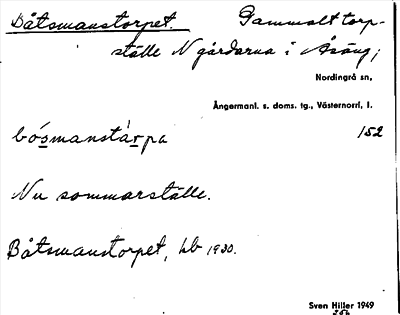 Båtsmanstorpet. Gammalt torp-
ställe N gårdarna i Åsäng;
Nordingrå sn,
Ångermanl. s. doms. tg., Västernorrl, l.
bósmanstàrpa 152
Nu sommarställe.
Båtsmanstorpet, kb 1930.
Sven Hiller 1949